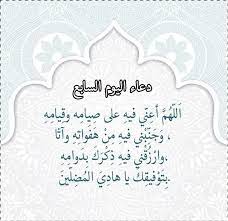 دعاء اليوم السابع
اَللّهُمَّ أَعِنّي فيهِ على صِيامِهِ وقِيامِهِ
، وَجَنِّبْني فيهِ مِنْ هَفَواتِهِ وآثا
.وارْزُقْني فيهِ ذِكْرَكَ بِدَوامِهِ
.بِتَوْفيقِكَ يا هادِيَ المُضِلّينَ